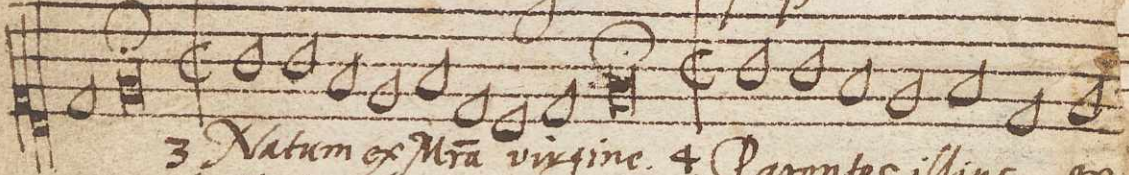 3 Natum ex Mr̄a virgine. 4 Parentes illius ex